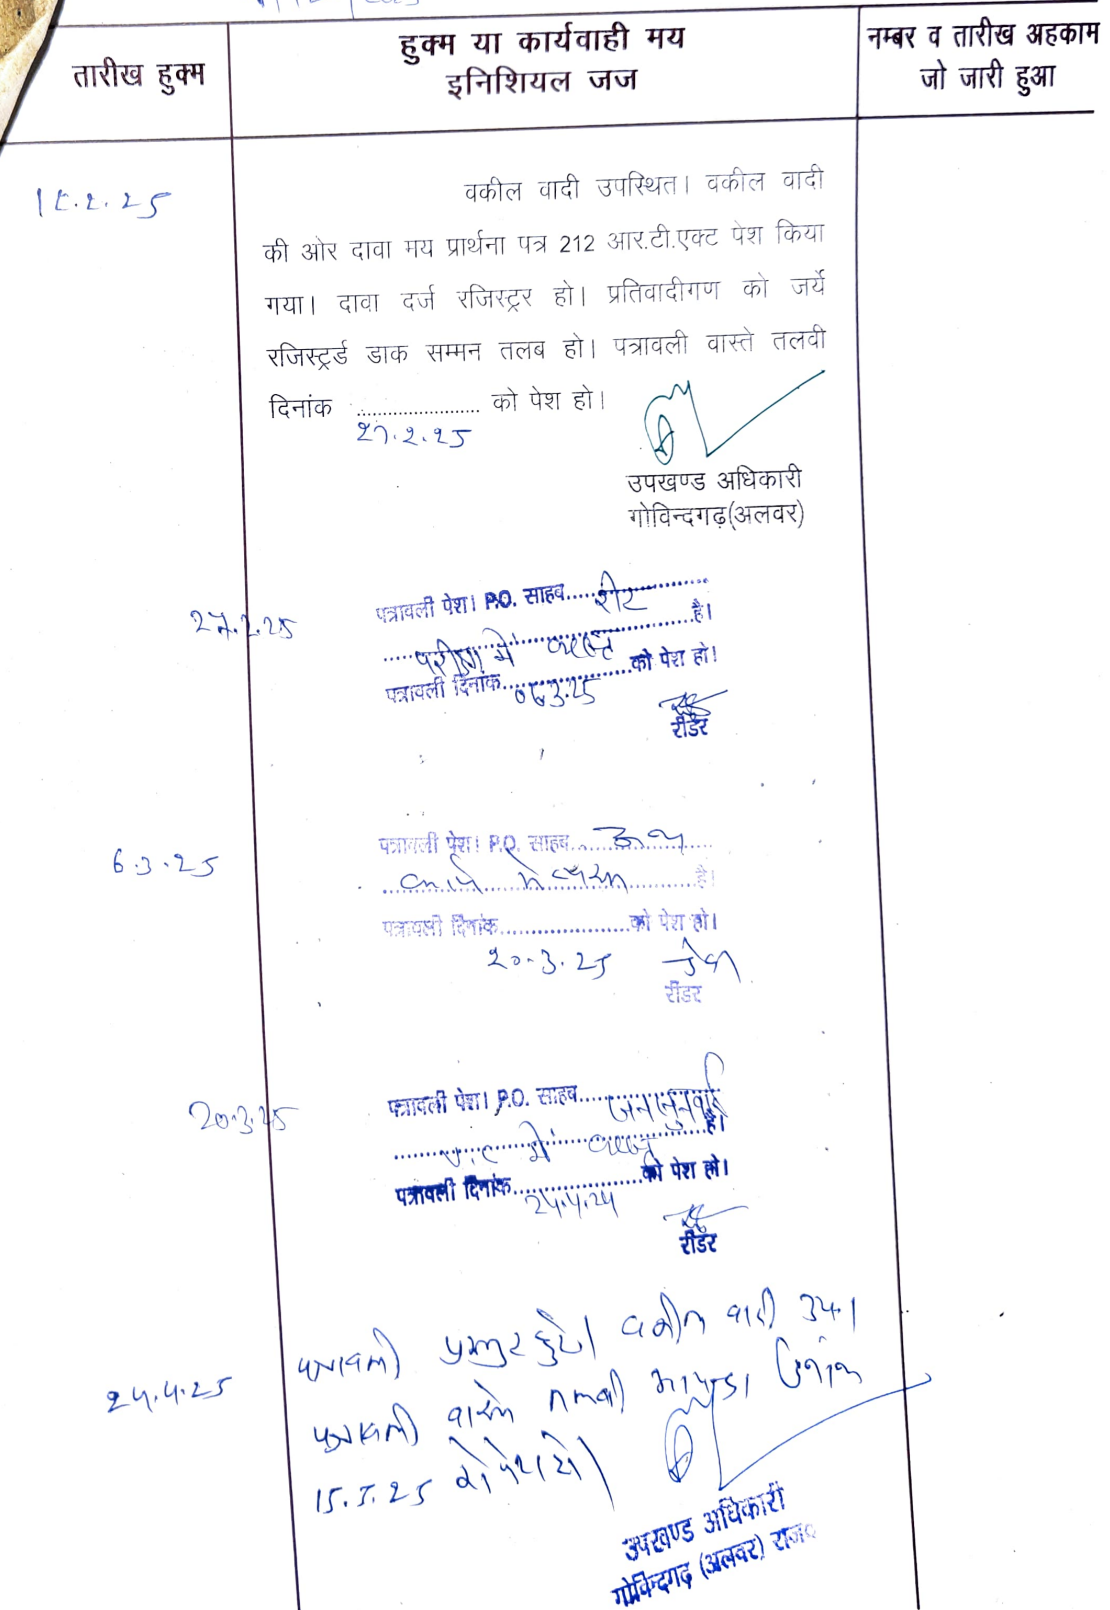 तारीख हुक्म
हुक्म या कार्यवाही मय
इनिशियल जज
नम्बर व तारीख अहकाम
जो जारी हुआ
वकील वादी उपस्थित। वकील वादी
की ओर दावा मय प्रार्थना पत्र 212 आर.टी.एक्ट पेश किया
गया। दावा दर्ज रजिस्ट्रर हो। प्रतिवादीगण को जर्ये
रजिस्ट्रर्ड डाक सम्मन तलब हो। पत्रावली वास्ते तलवी
दिनांक ........................ को पेश हो।
27.2.25
उपखण्ड अधिकारी
गोविन्दगढ़(अलवर)
27.2.25
पत्रावली पेश। P.O. साहब..... रीट
परीक्षा में व्यस्त है।
पत्रावली दिनांक 06.3.25 को पेश हो।
रीडर
6.3.25
पत्रावली पेश। P.O. साहब..... अन्य
कार्य में व्यस्त है।
पत्रावली दिनांक........................को पेश हो।
20.3.25
रीडर
20.3.25
पत्रावली पेश। P.O. साहब..... जनसुनवाई
में व्यस्त है।
पत्रावली दिनांक 24.4.24 को पेश हो।
रीडर
24.4.25
पत्रावली प्रस्तुत हुई। वकील वादी उप.।
पत्रावली वास्ते तलबी दिनांक
15.5.25 को पेश हो।
उपखण्ड अधिकारी
गोविन्दगढ़ (अलवर) राज०